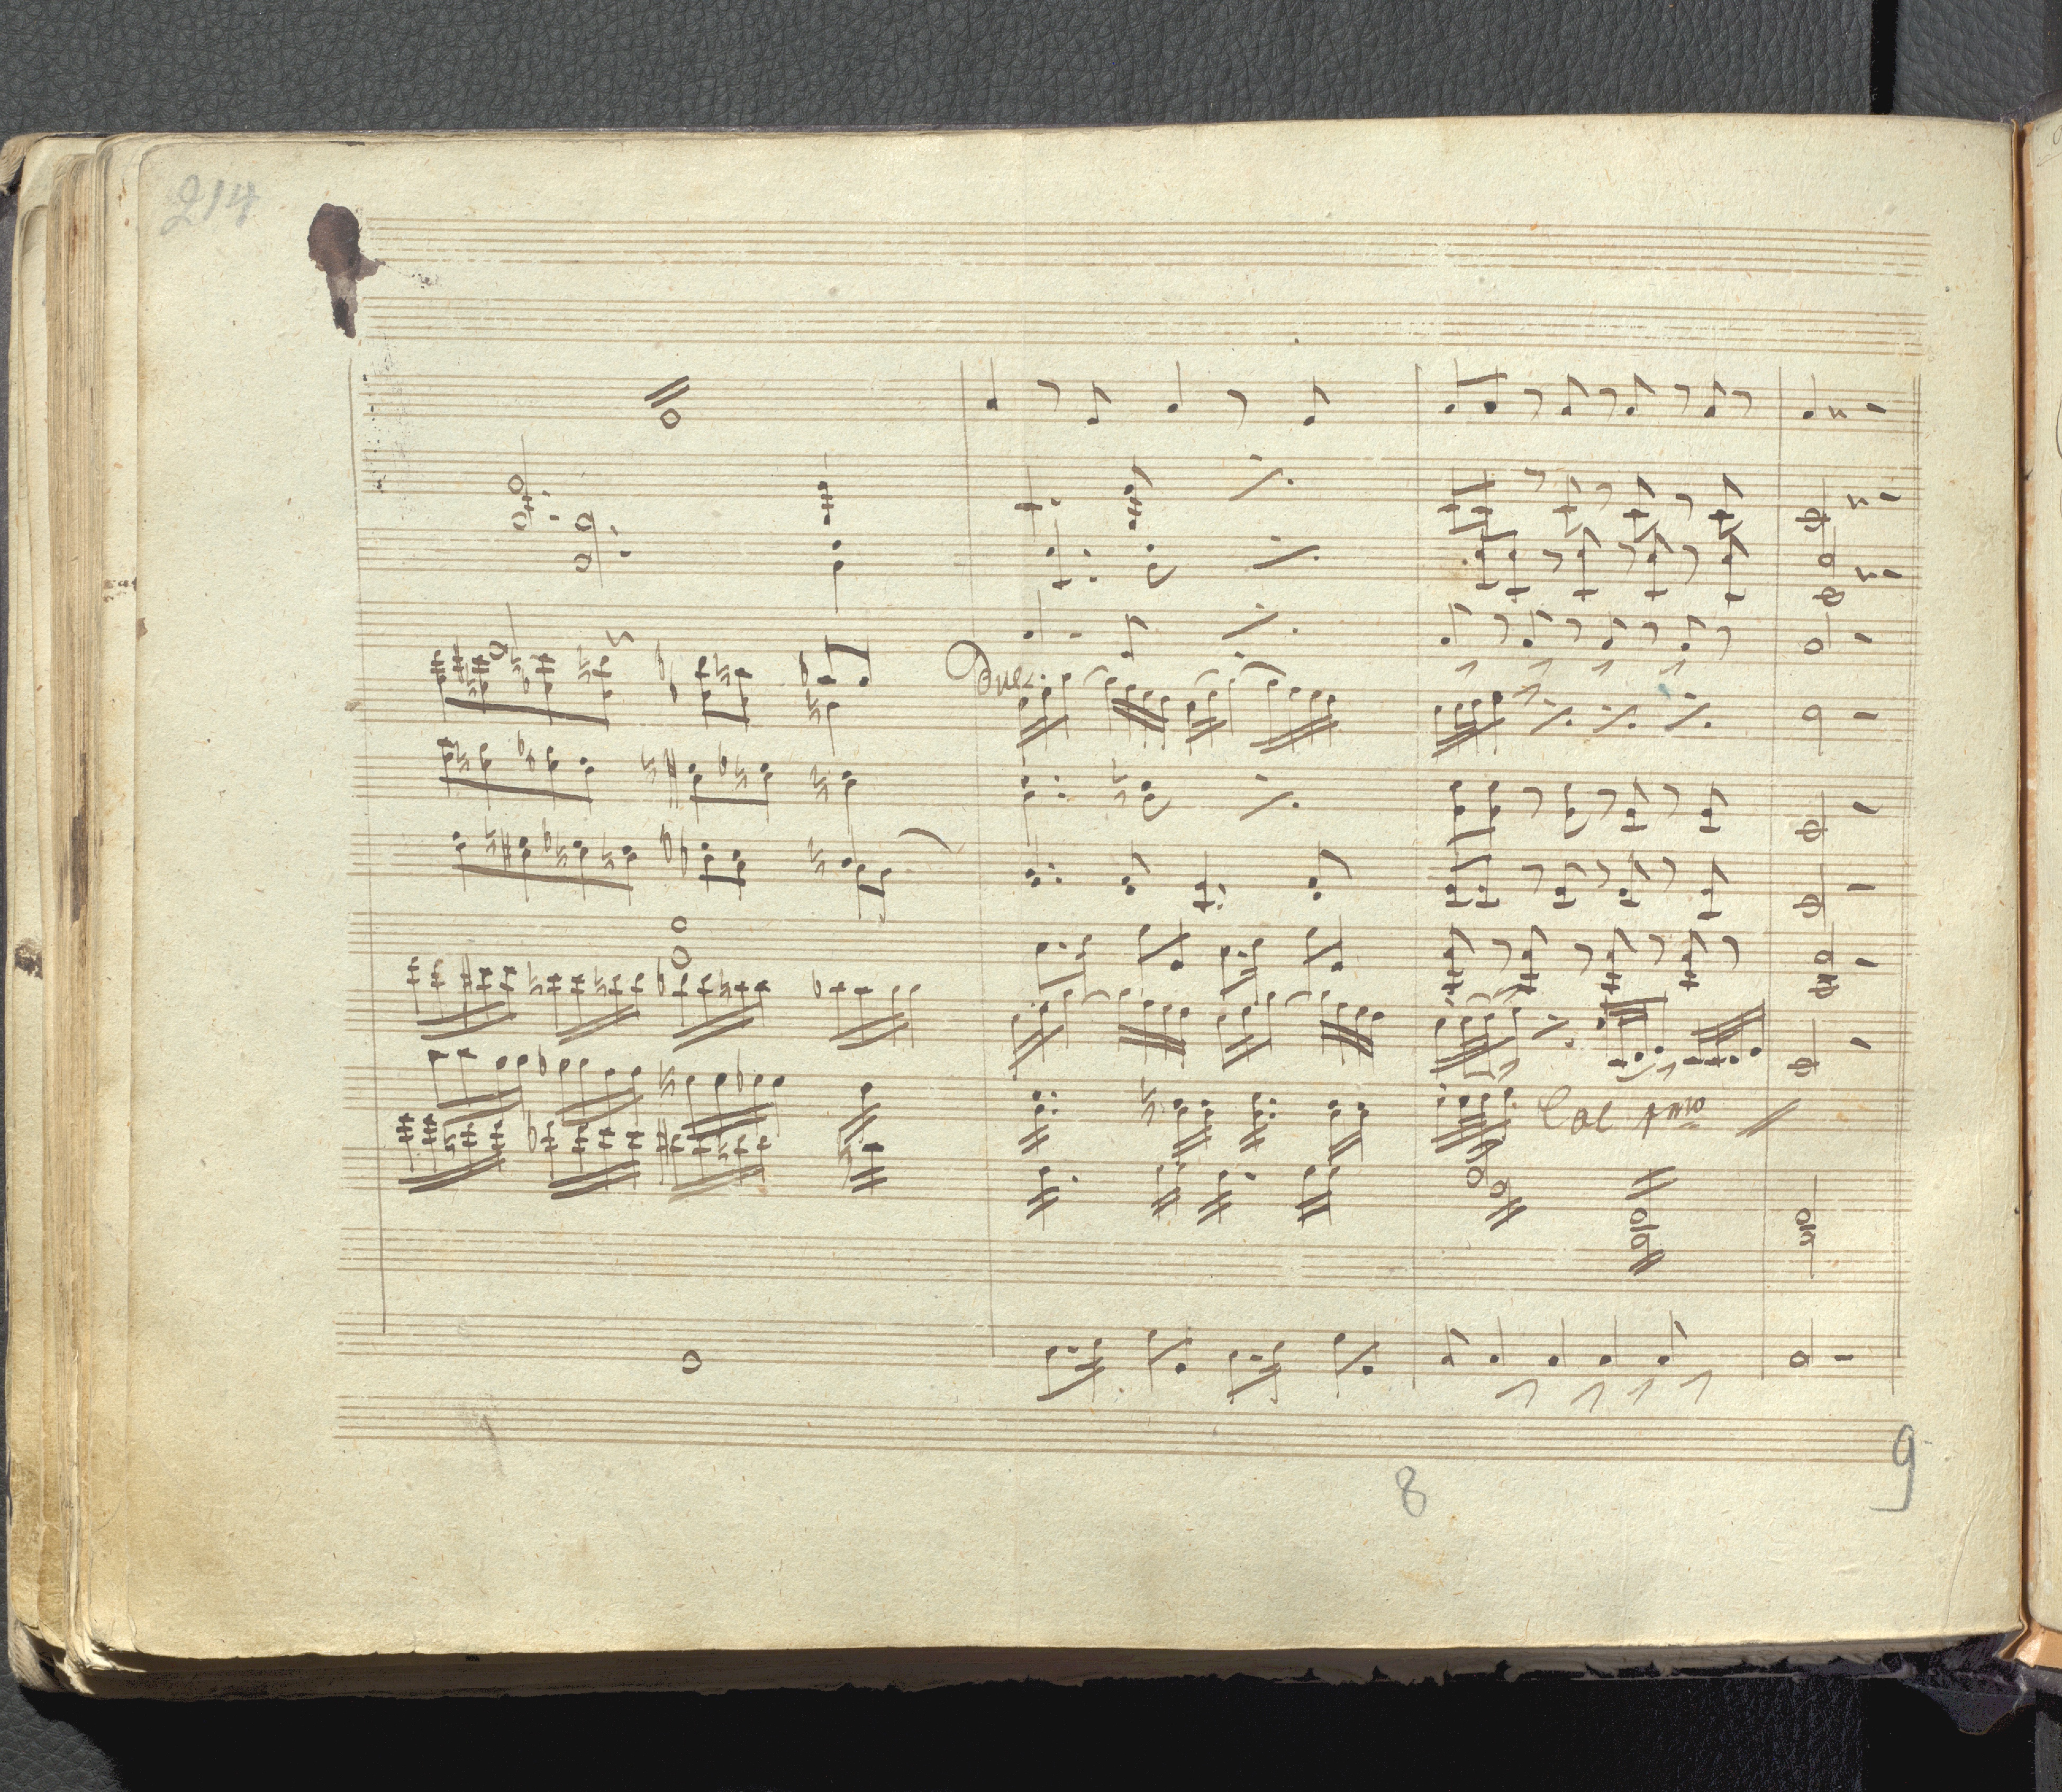 214
Due.
Col 1mo
8
9